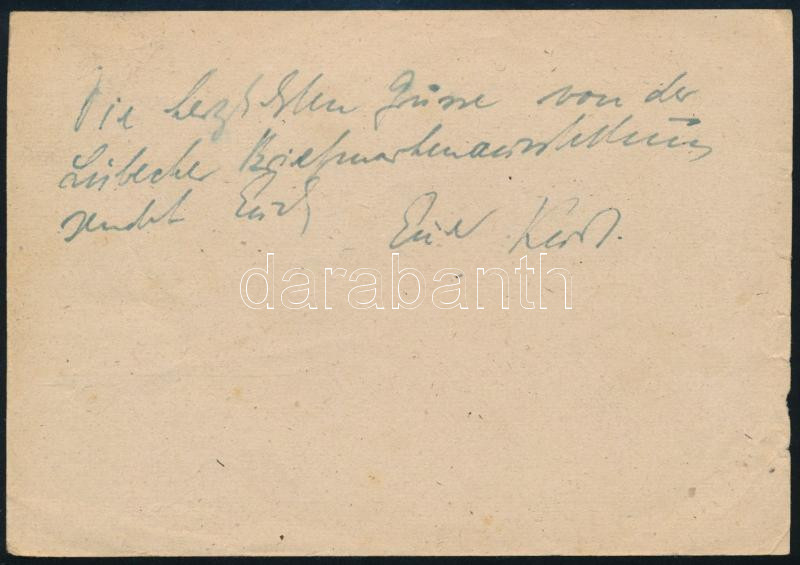 Die herzlichsten Grüsse von der
Lübecker Briefmarkenausstellung
sendet Euch Euer
darabanth